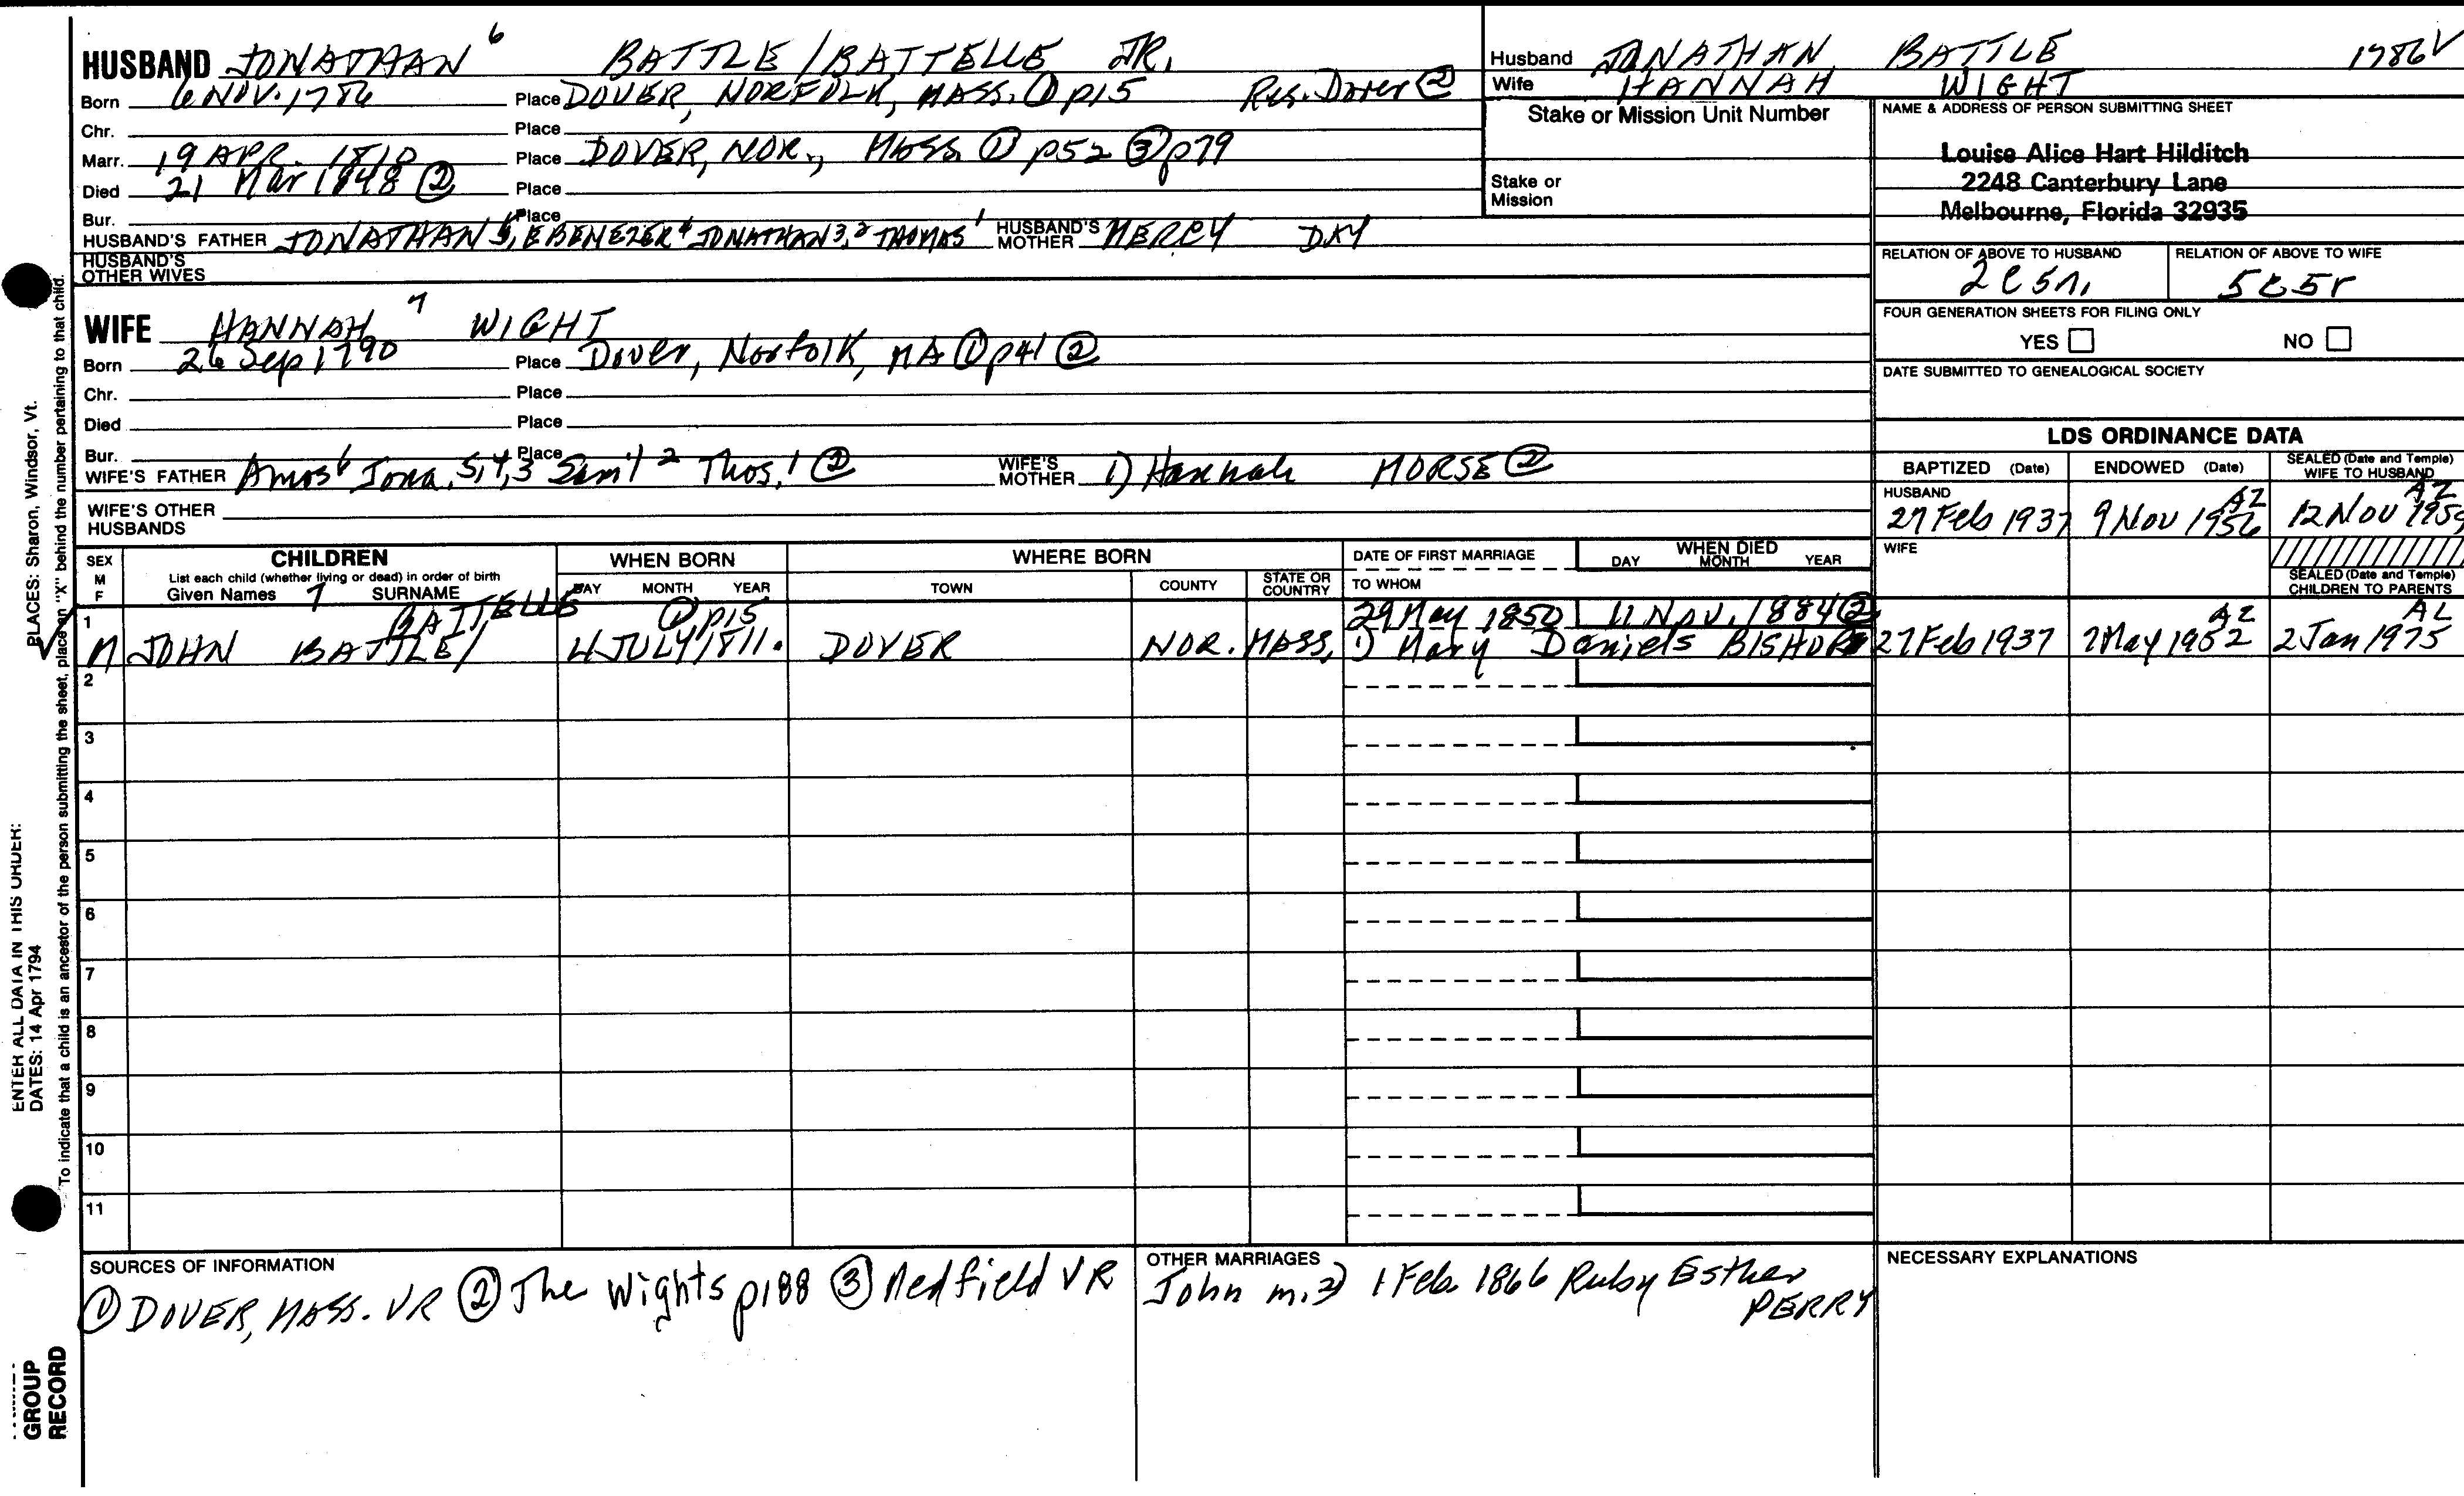 HUSBAND JONATHAN 6 BATTLE/BATTELLE JR.
Born 6 NOV. 1786 Place DOVER, NORFOLK, MASS. ① p15 Res. Dover ②
Chr. Place
Marr. 19 APR. 1810 Place DOVER, NOR., MASS ① p52 ③ p79
Died 21 Mar 1848 ② Place
Bur. Place
HUSBAND'S FATHER JONATHAN 5, EBENEZER 4 JONATHAN 3,2 THOMAS 1 HUSBAND'S MOTHER MERCY DAY
HUSBAND'S OTHER WIVES
Husband JONATHAN BATTLE 1786 V
Wife HANNAH WIGHT
Stake or Mission Unit Number
Stake or Mission
NAME & ADDRESS OF PERSON SUBMITTING SHEET
Louise Alice Hart Hilditch
2248 Canterbury Lane
Melbourne, Florida 32935
RELATION OF ABOVE TO HUSBAND RELATION OF ABOVE TO WIFE
2C5r, 5C5r
FOUR GENERATION SHEETS FOR FILING ONLY
YES NO
DATE SUBMITTED TO GENEALOGICAL SOCIETY
WIFE HANNAH 7 WIGHT
Born 26 Sep 1790 Place Dover, Norfolk, MA ① p41 ②
Chr. Place
Died Place
Bur. Place
WIFE'S FATHER Amos 6 Jona. 5,4,3 Sam'l 2 Thos. 1 ② WIFE'S MOTHER 1) Hannah MORSE ②
WIFE'S OTHER HUSBANDS
LDS ORDINANCE DATA
BAPTIZED (Date) ENDOWED (Date) SEALED (Date and Temple) WIFE TO HUSBAND
HUSBAND AZ AZ
27 Feb 1937 9 Nov 1956 12 Nov 195
WIFE
SEALED (Date and Temple) CHILDREN TO PARENTS
SEX M F CHILDREN WHEN BORN WHERE BORN DATE OF FIRST MARRIAGE WHEN DIED
List each child (whether living or dead) in order of birth DAY MONTH YEAR
Given Names 7 SURNAME DAY MONTH YEAR TOWN COUNTY STATE OR COUNTRY TO WHOM
1 BATTELLE ① p15 29 May 1850 11 Nov. 1884 ② AZ AL
M JOHN BATTLE/ 4 JULY 1811. DOVER NOR. MASS. 1) Mary Daniels BISHOP 27 Feb 1937 7 May 1952 2 Jan 1975
2
3
4
5
6
7
8
9
10
11
SOURCES OF INFORMATION
① DOVER, MASS. VR ② The Wights p188 ③ Medfield VR
OTHER MARRIAGES
John m. 2) 1 Feb. 1866 Ruby Esther
PERRY
NECESSARY EXPLANATIONS
ENTER ALL DATA IN THIS ORDER:
PLACES: Sharon, Windsor, Vt.
DATES: 14 Apr 1794
To indicate that a child is an ancestor of the person submitting the sheet, place an "X" behind the number pertaining to that child.
GROUP
RECORD